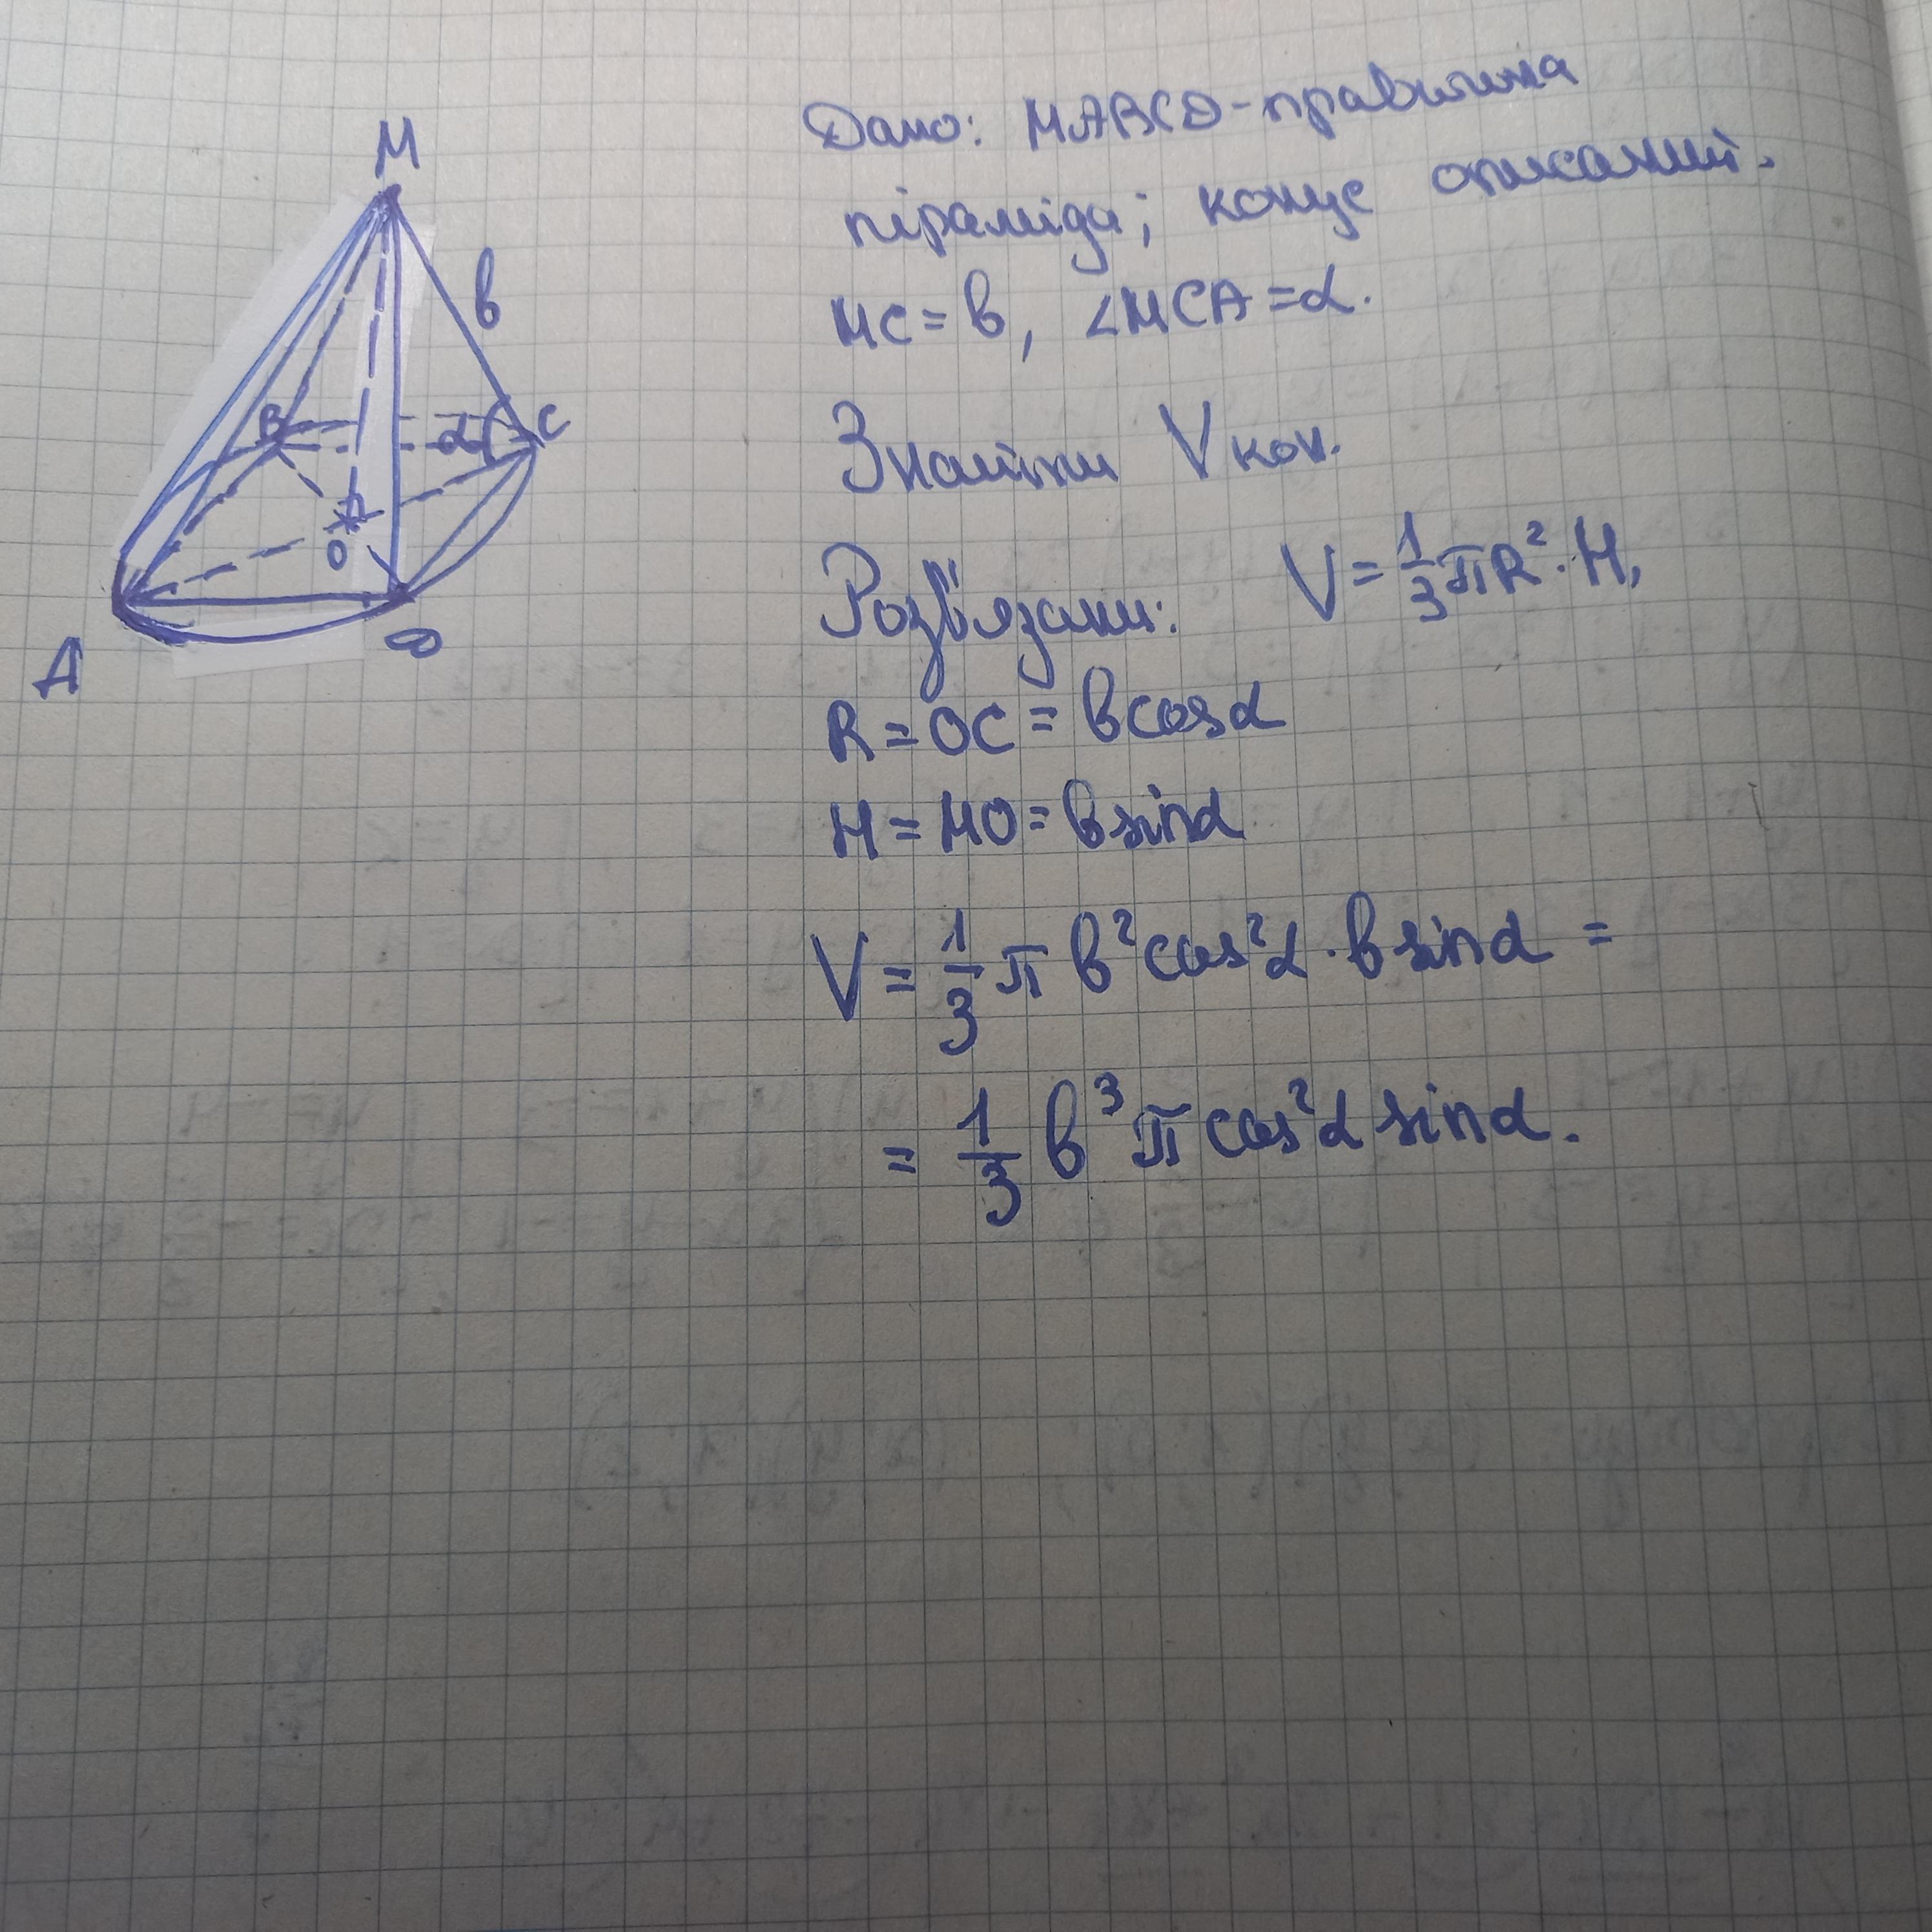 M
в
B
α
C
O
A
D
Дано: MABCD - правильна
піраміда; конус описаний.
MC = в, ∠MCA = α.
Знайти Vкон.
Розв'язання: V = 1/3 πR² · H,
R = OC = в cos α
H = MO = в sin α
V = 1/3 π в² cos² α · в sin α =
= 1/3 в³ π cos² α sin α.